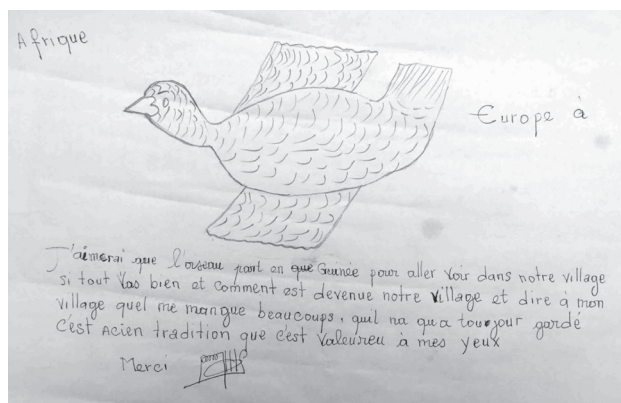 Afrique
Europe à
J'aimerai que l'oiseau part en que Guinée pour aller voir dans notre village
si tout vas bien et comment est devenue notre village et dire à mon
village quel me manque beaucoups, quil na qua toujour gardé
c'est Acien tradition que c'est valeureu à mes yeux
Merci